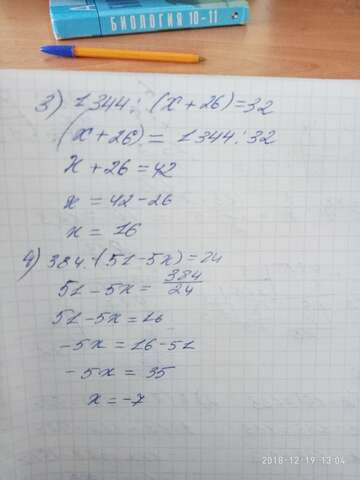 БИОЛОГИЯ 10-11
3) 1344 : (x + 26) = 32
(x + 26) = 1344 : 32
x + 26 = 42
x = 42 - 26
x = 16
4) 384 : (51 - 5x) = 24
51 - 5x = 384/24
51 - 5x = 16
-5x = 16 - 51
-5x = 35
x = -7
2018-12-19-13:04